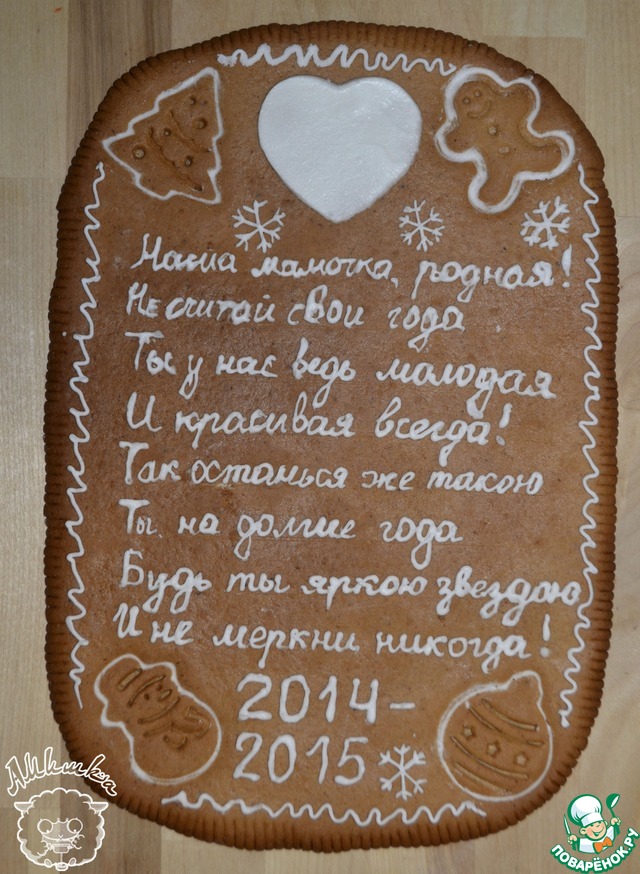 Наша мамочка, родная!
Не считай свои года
Ты у нас ведь молодая
И красивая всегда!
Так останься же такою
Ты на долгие года
Будь ты яркою звездою
И не меркни никогда!
2014-
2015
АМишка
ПОВАРЁНОК.РУ